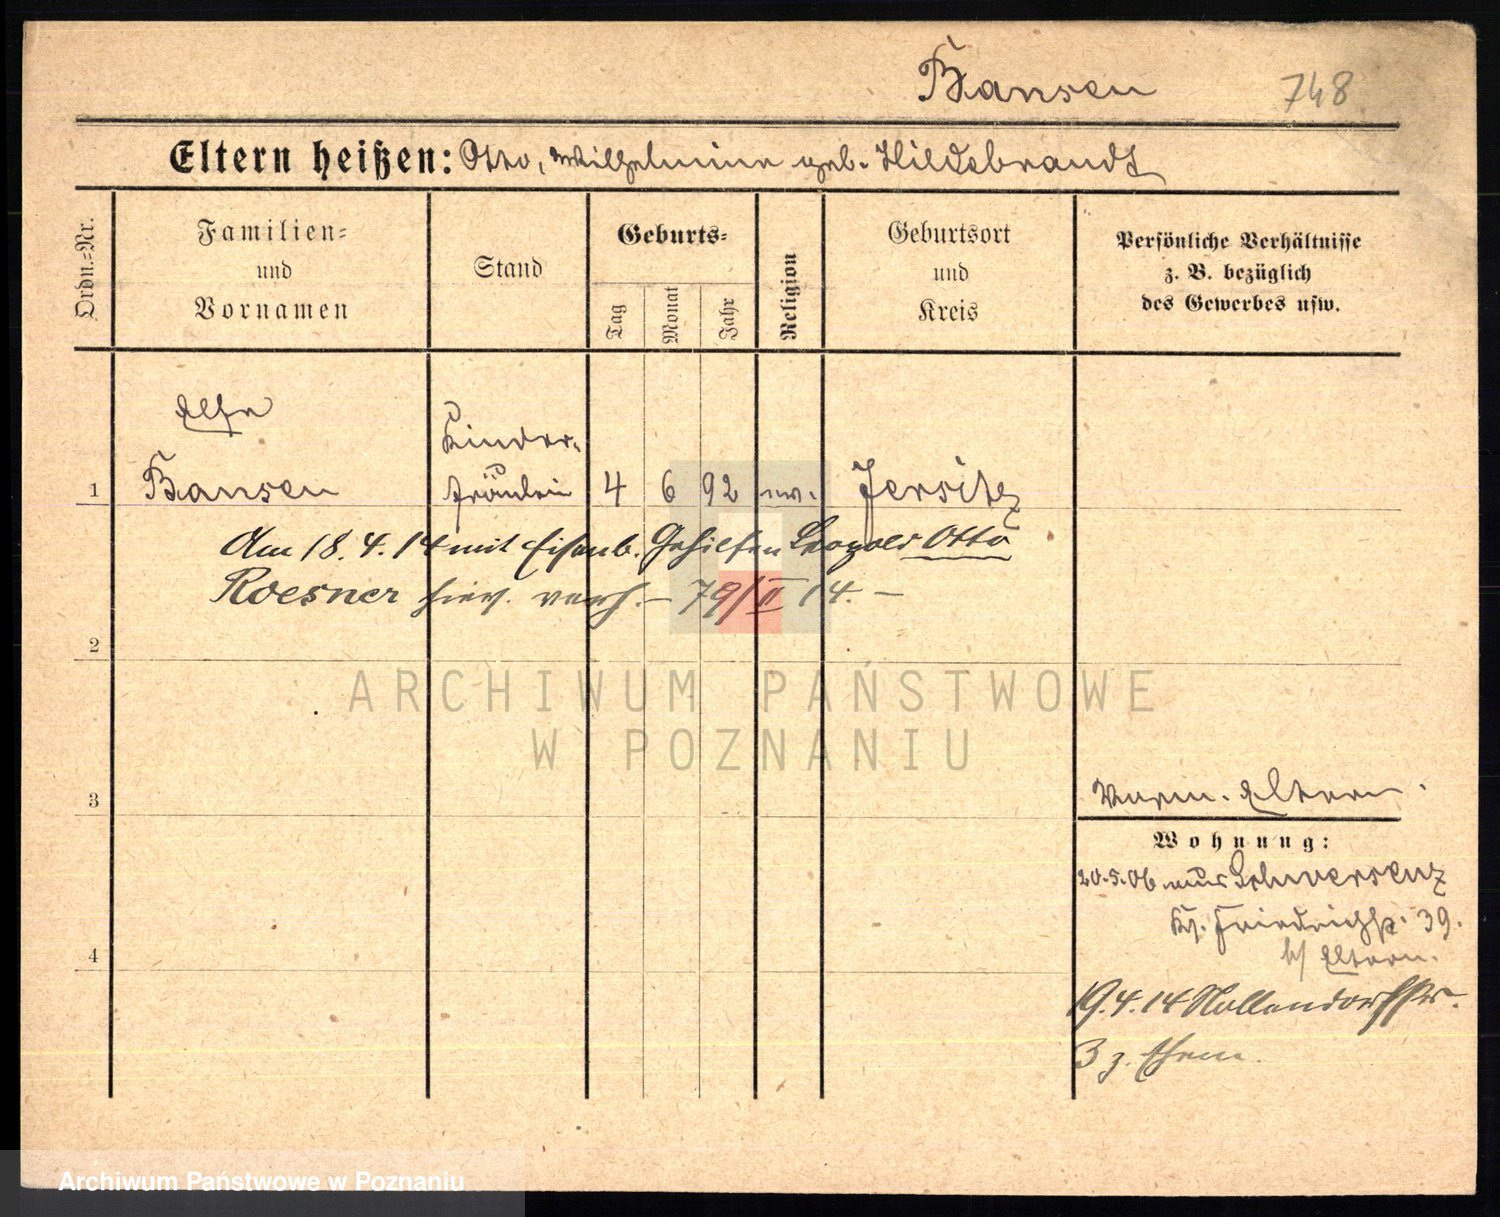 Bansen 748
Eltern heißen: Otto, Wilhelmine geb. Hildebrandt
Ordn.-Nr.
Familien- und Vornamen
Stand
Geburts-
Tag
Monat
Jahr
Religion
Geburtsort und Kreis
Persönliche Verhältnisse z. B. bezüglich des Gewerbes usw.
Else
Kinder-
1 Bansen fräulein 4 6 92 ev. Jersitz
Am 18. 4. 14 mit Eisenb. Gehilfen Leopold Otto
Roesner hier verh. – 79/II 14. –
2
ARCHIWUM PAŃSTWOWE
W POZNANIU
3
Verm. Eltern.
Wohnung:
20.5.06 aus Schwersenz
Friedrichstr. 39.
b/ Eltern.
4
19.4.14 Nollendorfstr.
3 z. Ehem.
Archiwum Państwowe w Poznaniu